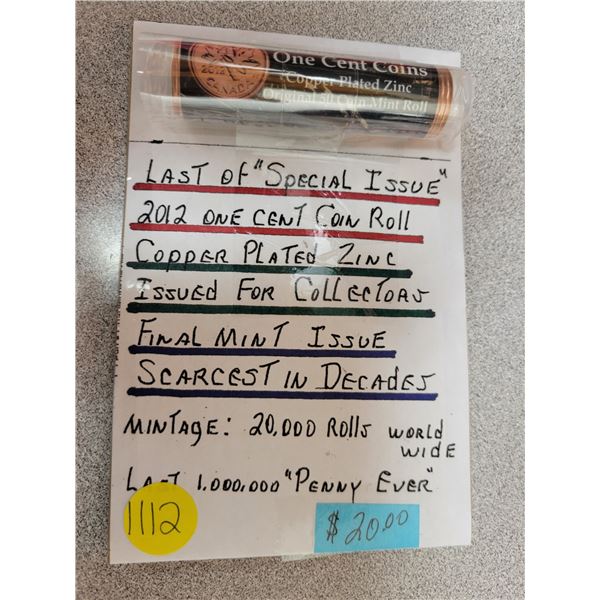 2012
CANADA
One Cent Coins
Copper Plated Zinc
Original 50 Coin Mint Roll
LAST OF "SPECIAL ISSUE"
2012 ONE CENT COIN ROLL
COPPER PLATED ZINC
ISSUED FOR COLLECTORS
FINAL MINT ISSUE
SCARCEST IN DECADES
MINTAGE: 20,000 ROLLS WORLD WIDE
LAST 1,000,000 "PENNY EVER"
1112
$20.00